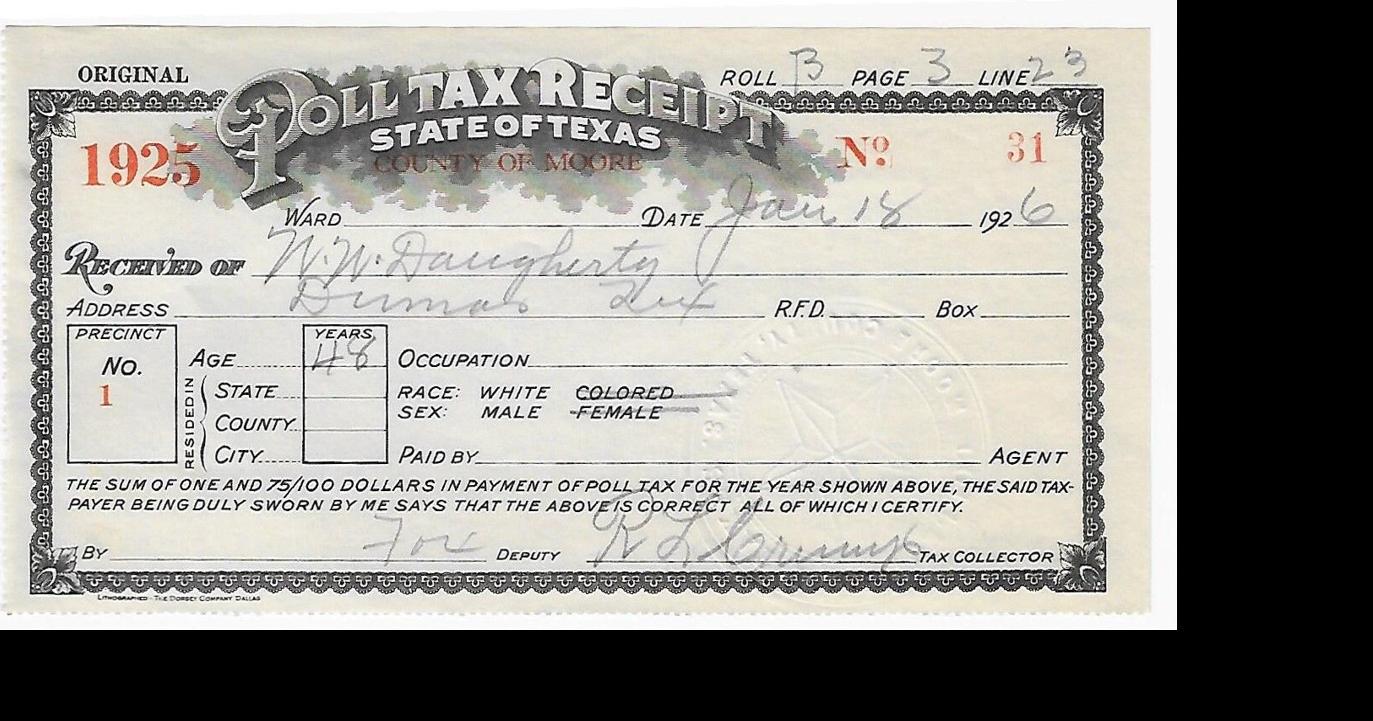 ORIGINAL
POLL TAX RECEIPT
ROLL B PAGE 3 LINE 23
STATE OF TEXAS
1925
COUNTY OF MOORE
No. 31
WARD DATE Jan 18 1926
RECEIVED OF W.W. Daugherty
ADDRESS Dumas Tex R.F.D. BOX
PRECINCT
No.
1
YEARS
AGE 48 OCCUPATION
RESIDED IN
STATE RACE: WHITE COLORED
SEX: MALE FEMALE
COUNTY
CITY PAID BY AGENT
THE SUM OF ONE AND 75/100 DOLLARS IN PAYMENT OF POLL TAX FOR THE YEAR SHOWN ABOVE, THE SAID TAX-
PAYER BEING DULY SWORN BY ME SAYS THAT THE ABOVE IS CORRECT ALL OF WHICH I CERTIFY.
BY DEPUTY R L Crump TAX COLLECTOR
LITHOGRAPHED - THE DORSEY COMPANY DALLAS